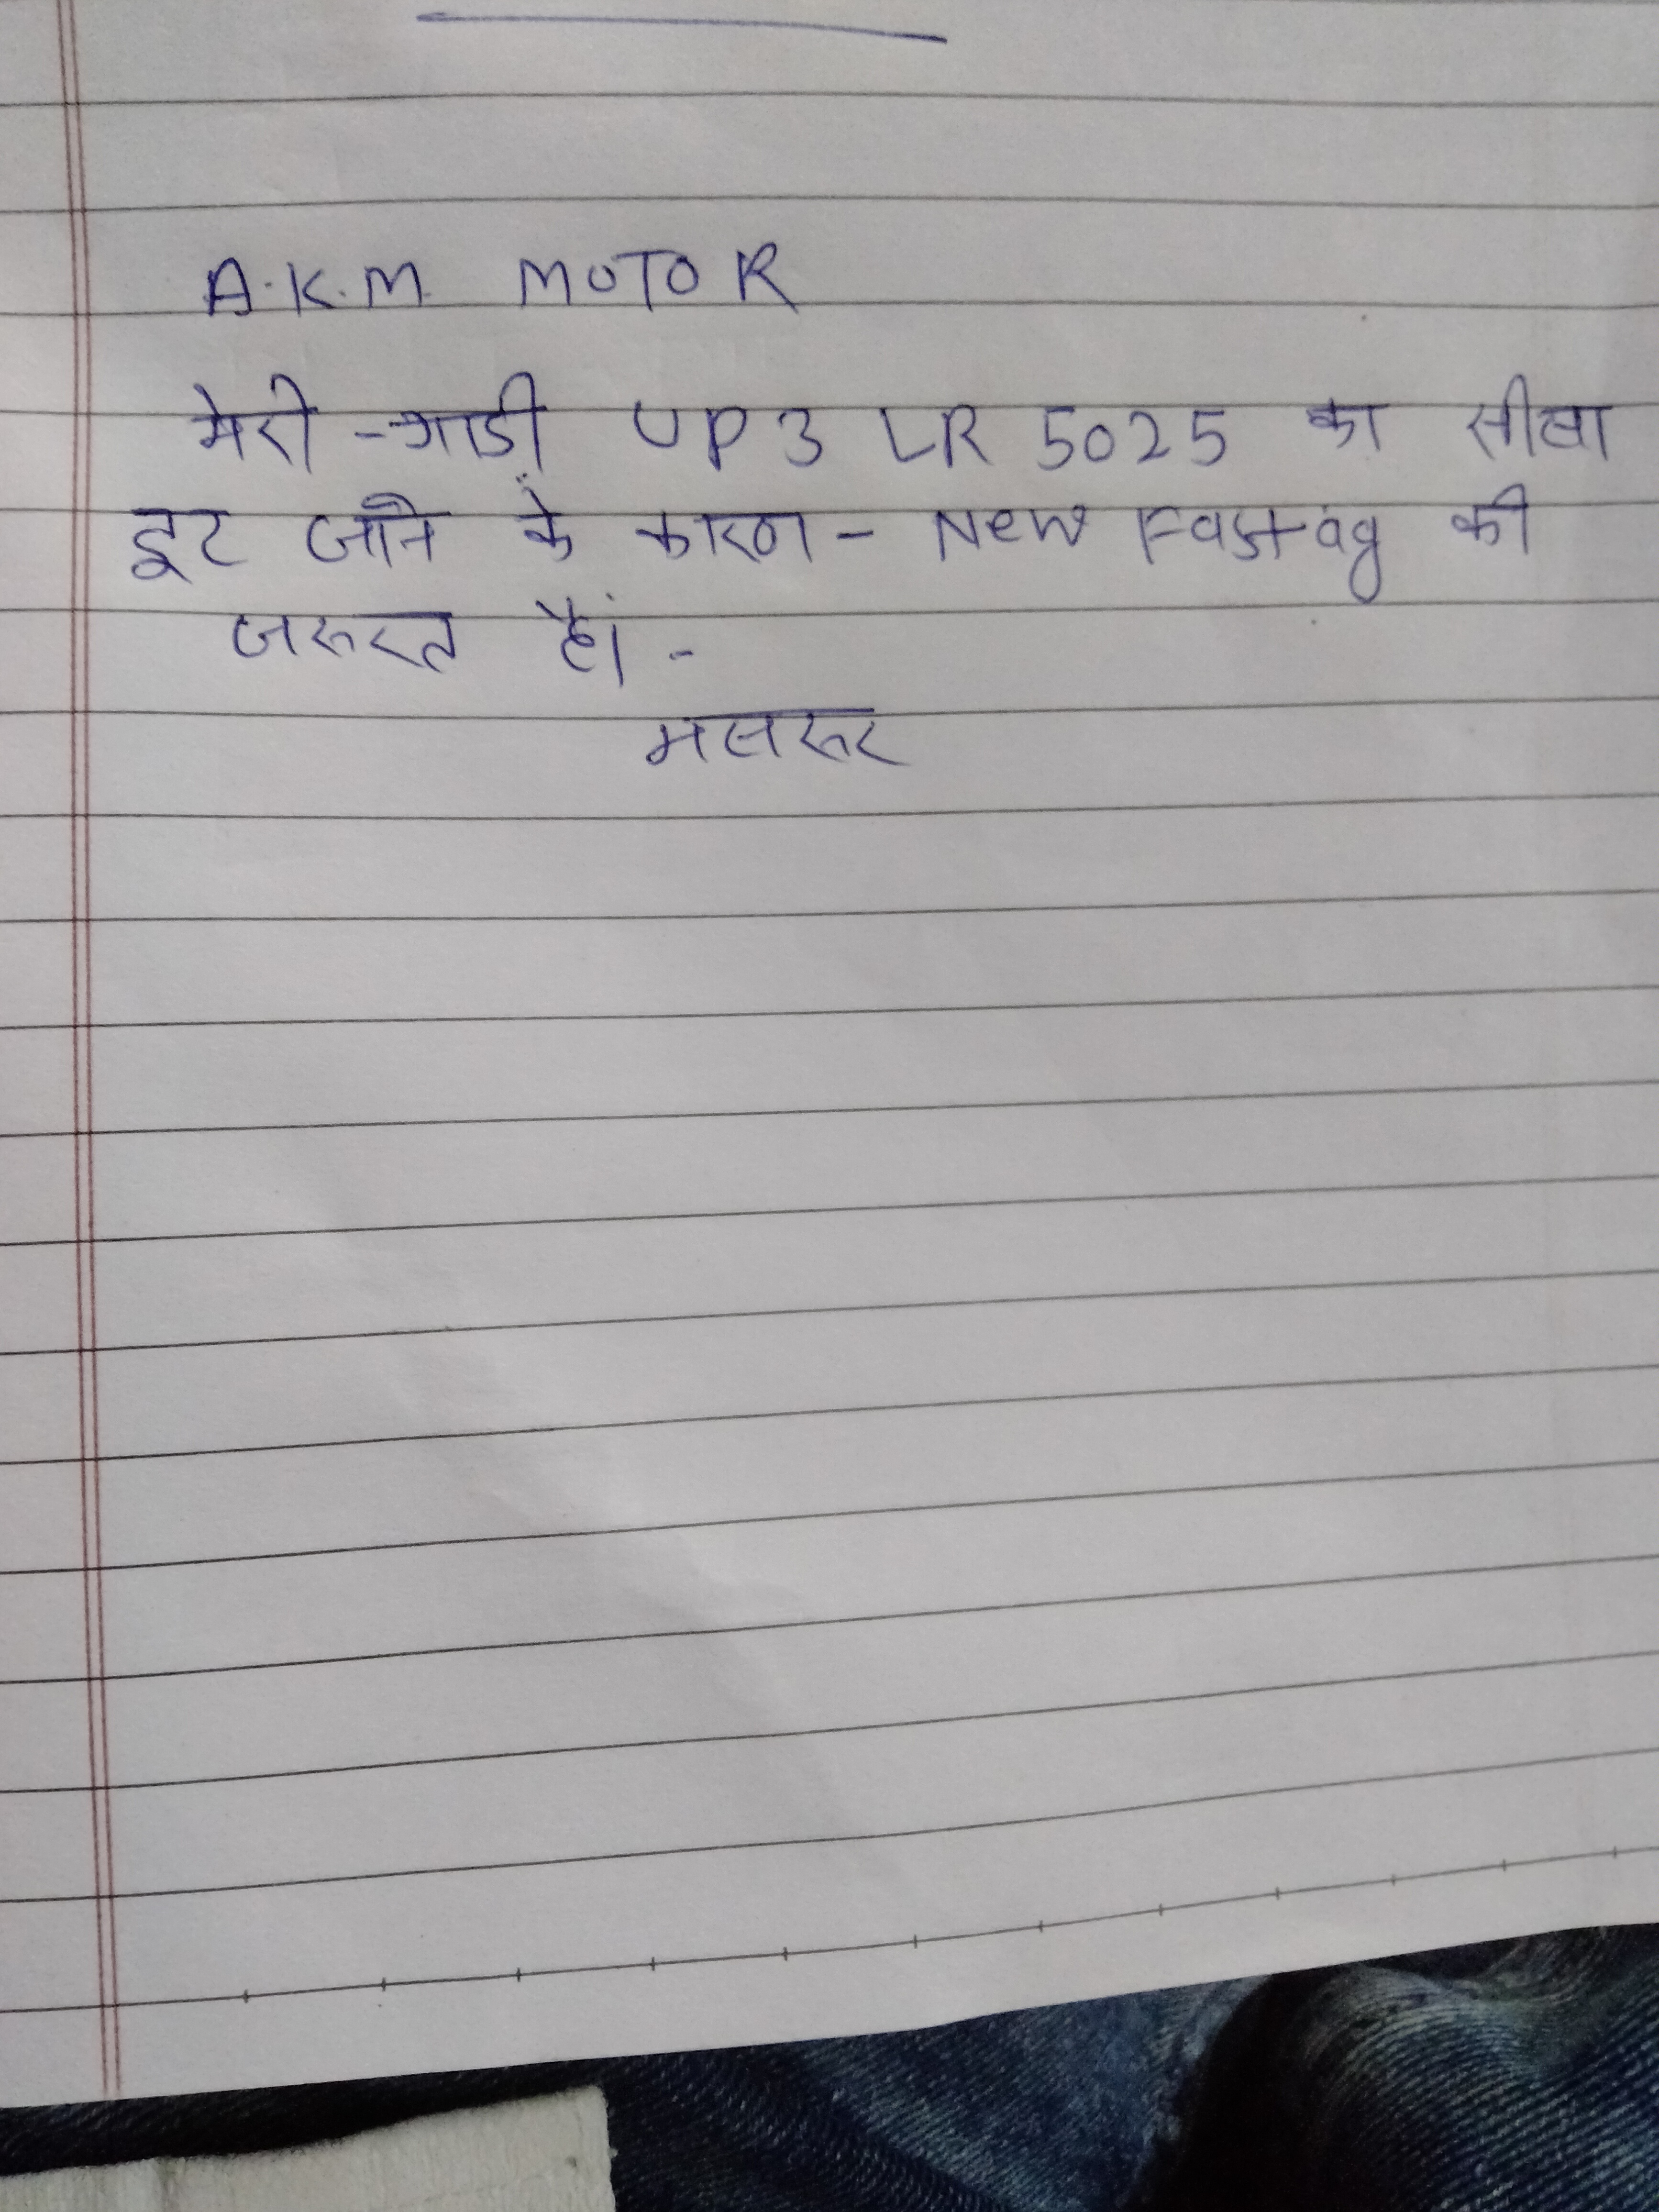 A.K.M. MOTOR
मेरी - गाडी UP3 LR 5025 का सीसा
टुट जाने के कारण - New Fastag की
जरुरत हैं। -
मसरुर